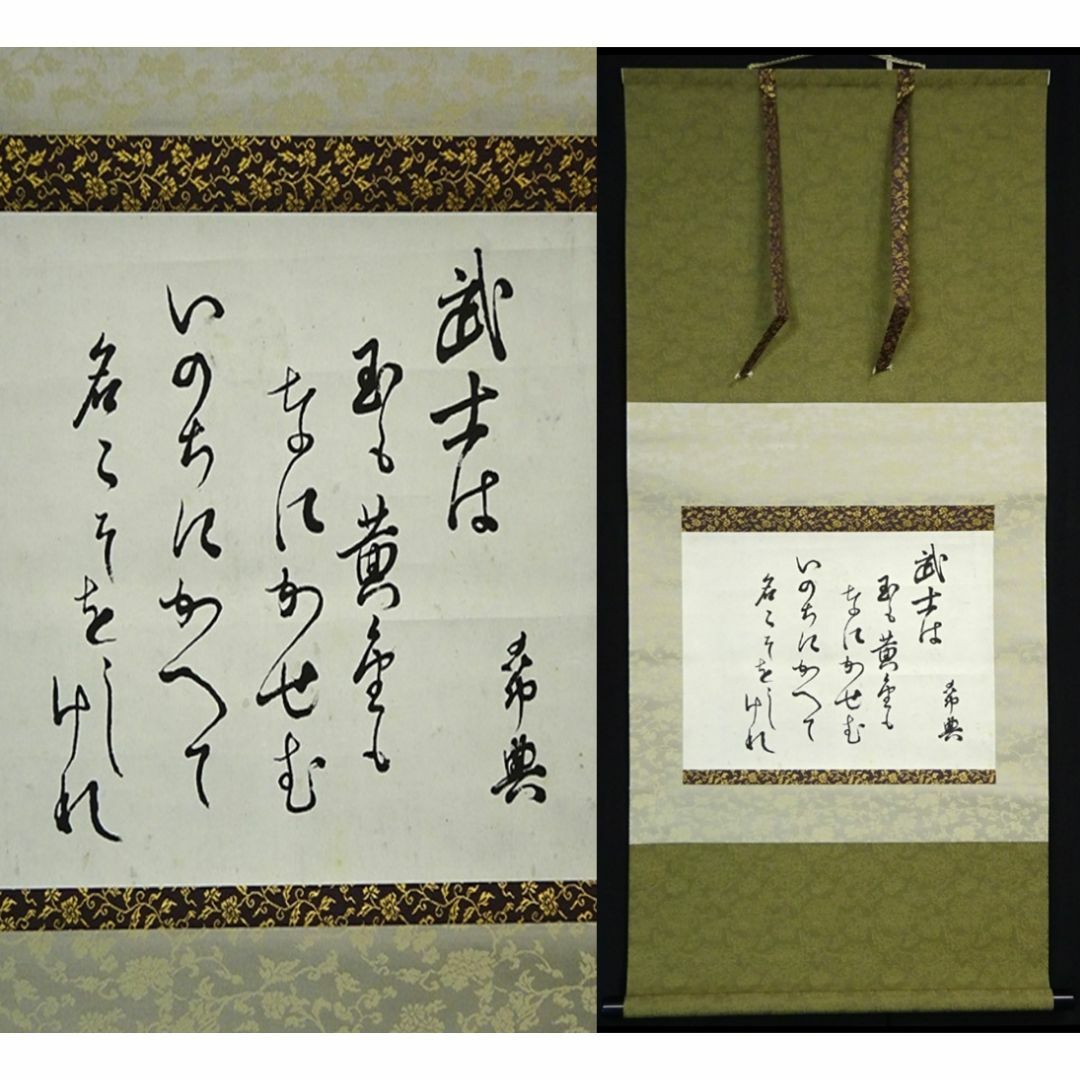 武士は
玉も黄金も
なにかせむ
いのちにかへて
名こそをしけれ
希典
武士は
玉も黄金も
なにかせむ
いのちにかへて
名こそをしけれ
希典